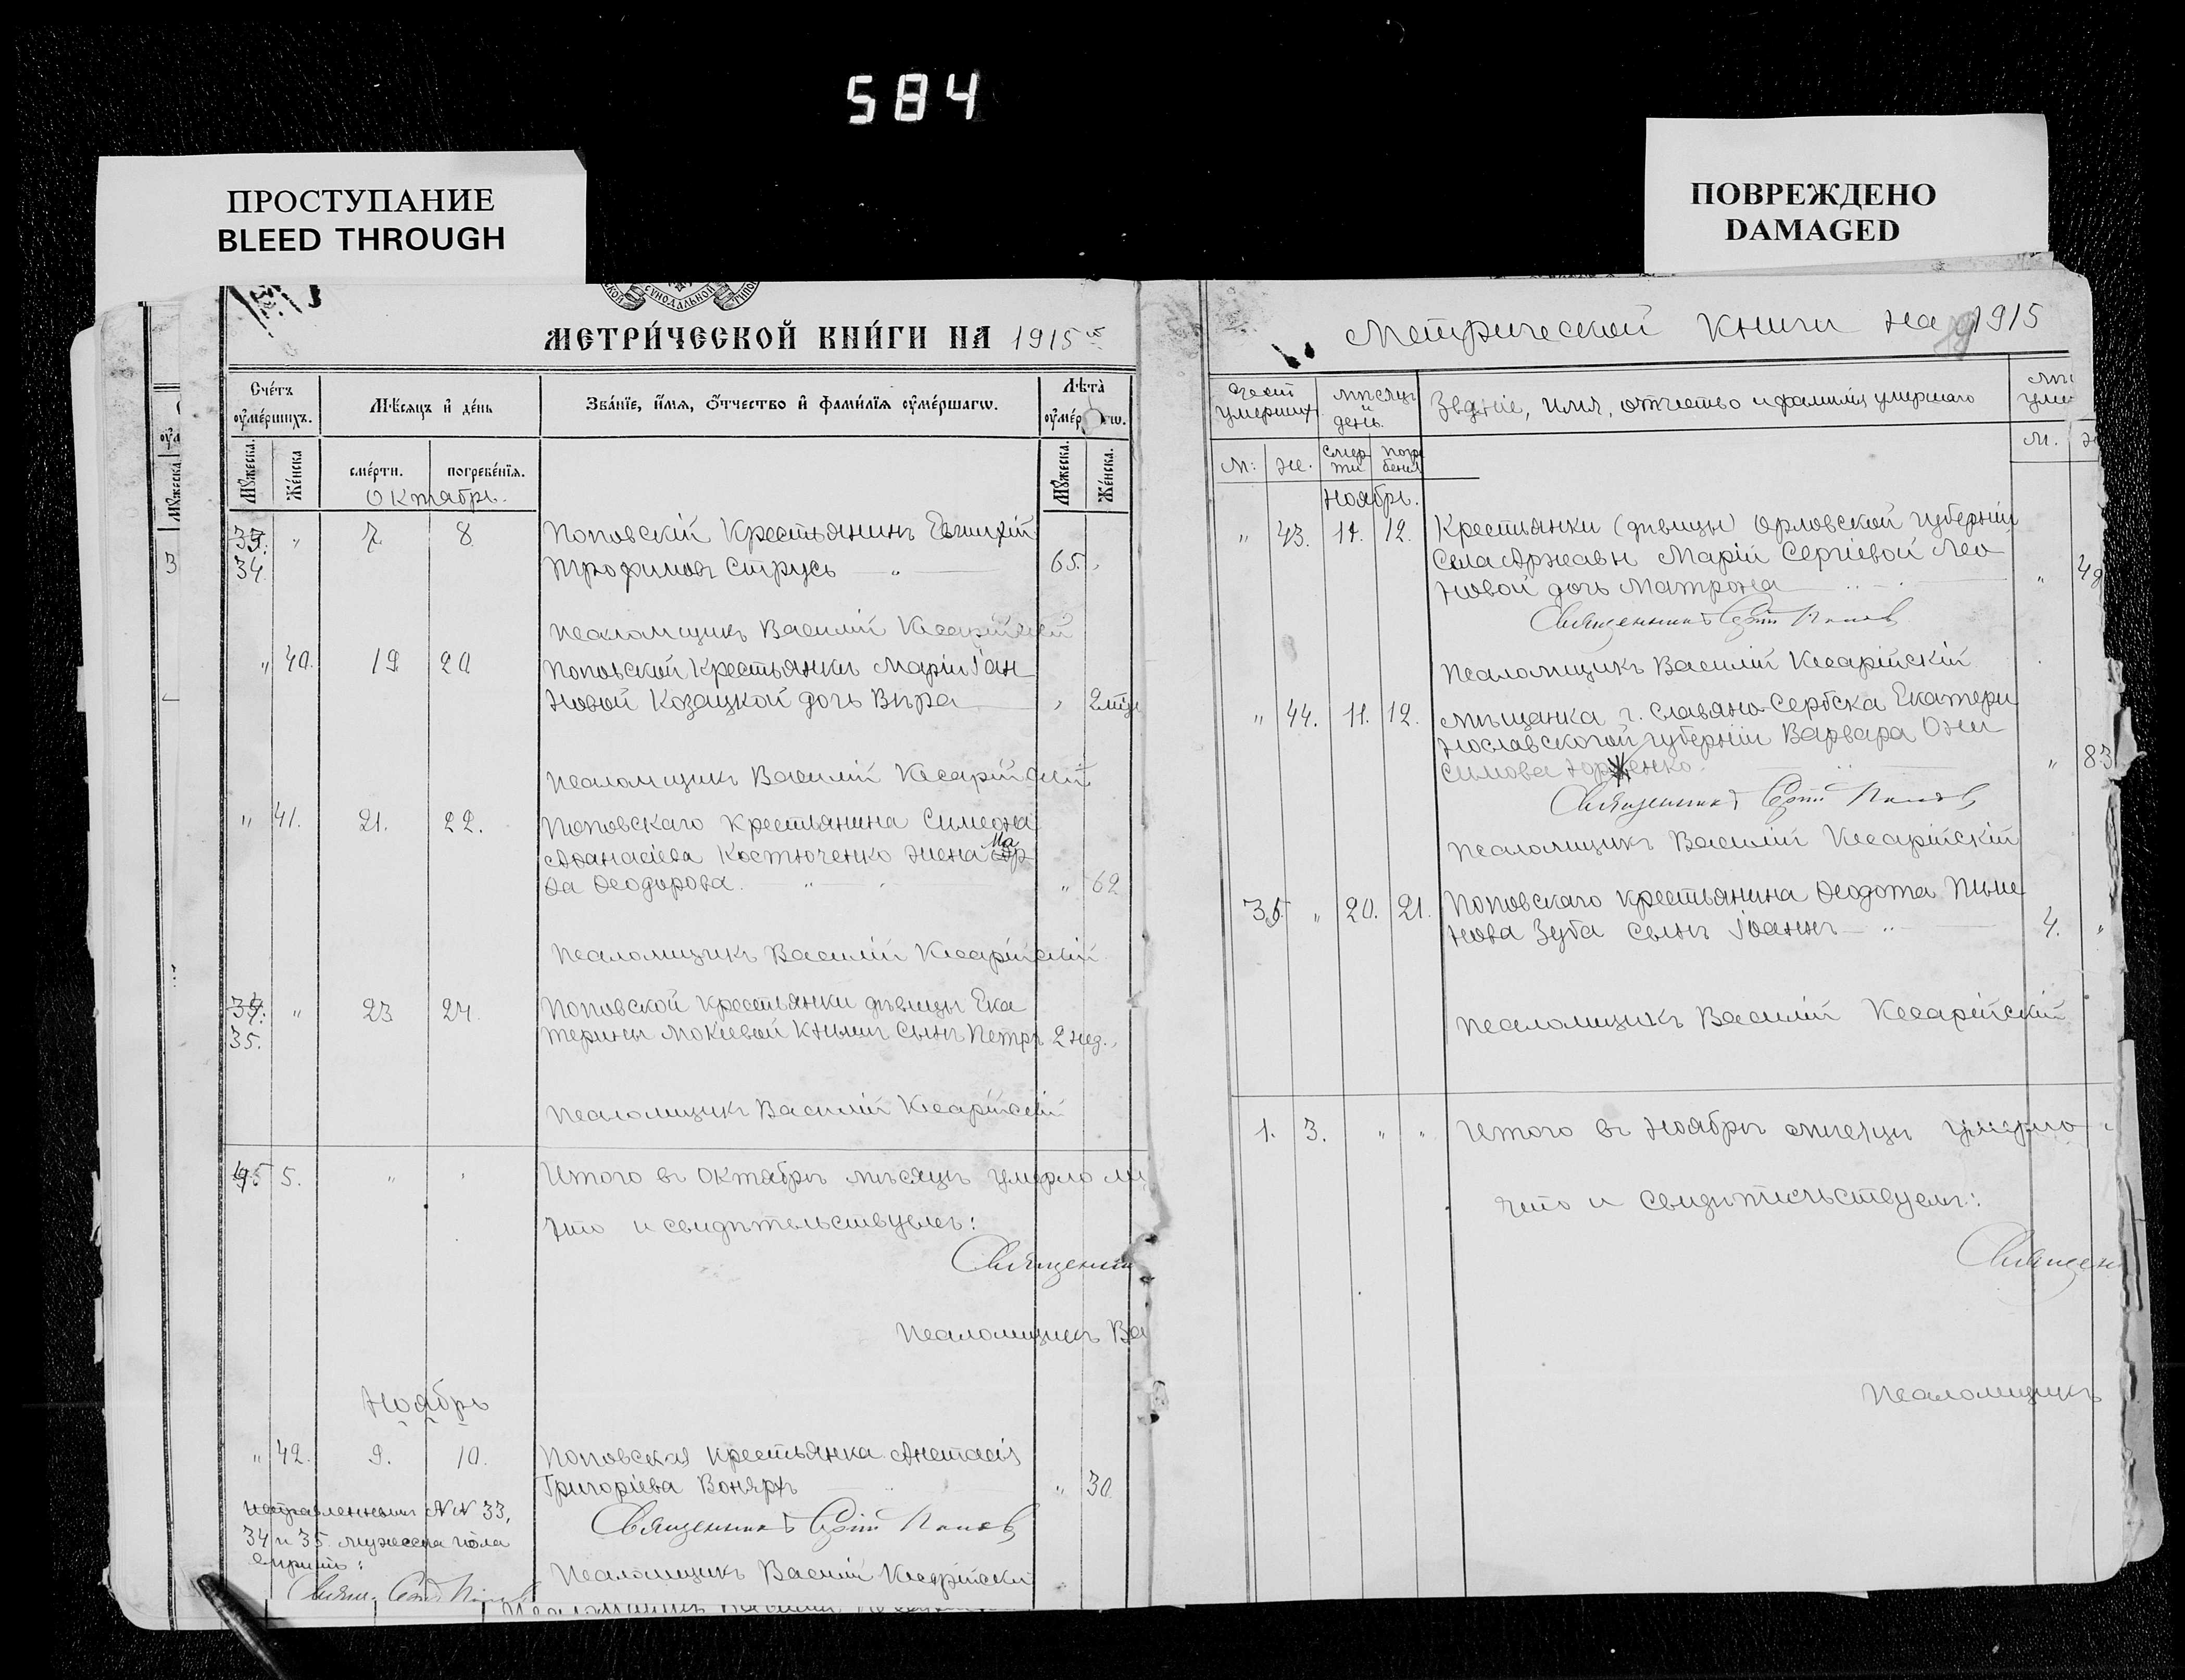 584
ПРОСТУПАНИЕ
BLEED THROUGH
ПОВРЕЖДЕНО
DAMAGED
МЕТРИ́ЧЕСКОЙ КНИ́ГИ НА 1915
Счéтъ ᲂу҆мéршихъ.
Мѣ́сяцъ и҆ дéнь
Звáнїе, и҆́мя, ѻ҆́тчество и҆ фами́лїя ᲂу҆мéршагѡ.
Лѣ́та̀
Мꙋ́жеска.
Жéнска
смéрти.
погребéнїя.
Мꙋ́жеска.
Жéнска.
Октябрь.
34 " 7. 8. Поповскій Крестьянинъ
Трофимовъ Струсь — " — 65.
Псаломщикъ Василій Кесарійскій
" 40. 19 20 Поповской Крестьянки Маріи Іан
новой Козацкой дочь Вѣра
Псаломщикъ Василій Кесарійскій
" 41. 21. 22. Поповскаго крестьянина Симеона
Аѳанасіева Костюченко жена Мар
ѳа Ѳеодорова. " 62
Псаломщикъ Василій Кесарійскій
35. " 23 24. Поповской крестьянки дѣвицы Ека
терины Мокіевой сынъ Петръ 2 нед.
Псаломщикъ Василій Кесарійскій
5. " Итого въ Октябрѣ мѣсяцѣ умерло
что и свидѣтельствуемъ:
Священни
Псаломщикъ Ва
Ноябрь
" 42. 9. 10. Поповская крестьянка Анастасія
Григоріева " 30
Священникъ Попов
Псаломщикъ Василій Кесарійскій
№№ 33,
34 и 35 мужеска пола
вѣрить:
Свящ.
Метрической книги на 1915
Счетъ умершихъ
мѣсяцъ и день.
Званіе, имя, отчество и фамилія умершаго
М: Же. Смерти Погребенія
М.
Ноябрь.
" 43. 11. 12. Крестьянки (дѣвицы) Орловской губерніи
Села Маріи Сергіевой Лео
новой дочь Матрона "
Священникъ Попов
Псаломщикъ Василій Кесарійскій
" 44. 11. 12. Мѣщанка г. Славяно-Сербска Екатери
нославской губерніи Варвара Они
симова " 83
Священникъ Попов
Псаломщикъ Василій Кесарійскій
35. " 20. 21. Поповскаго крестьянина Ѳеодота
нова Зуба сынъ Іоаннъ — " — 4. "
Псаломщикъ Василій Кесарійскій
1. 3. " " Итого въ Ноябрѣ мѣсяцѣ умерло
что и свидѣтельствуемъ:
Священ
Псаломщикъ